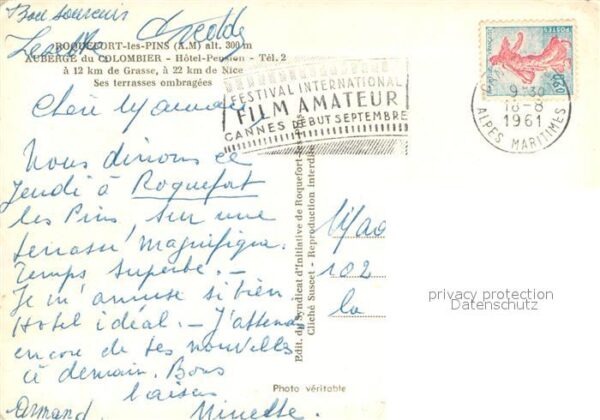 Bon souvenir
ROQUEFORT-les-PINS (A.M) alt. 300 m
AUBERGE du COLOMBIER - Hôtel-Pension - Tél. 2
à 12 km de Grasse, à 22 km de Nice
Ses terrasses ombragées
FESTIVAL INTERNATIONAL
FILM AMATEUR
CANNES DEBUT SEPTEMBRE
POSTES
0,20
9-30
18-8
1961
ALPES MARITIMES
Chère Maman,
Nous dinons ce
Jeudi à Roquefort
les Pins, sur une
terrasse magnifique.
Temps superbe. -
Je m'amuse si bien.
Hotel idéal. - J'attends
encore de tes nouvelles
à demain. Bons
baisers
Armand. Minette.
Edit. du Syndicat d'Initiative de Roquefort-les-Pins
Cliché Suscet - Reproduction interdite
102
la
Photo véritable
privacy protection
Datenschutz